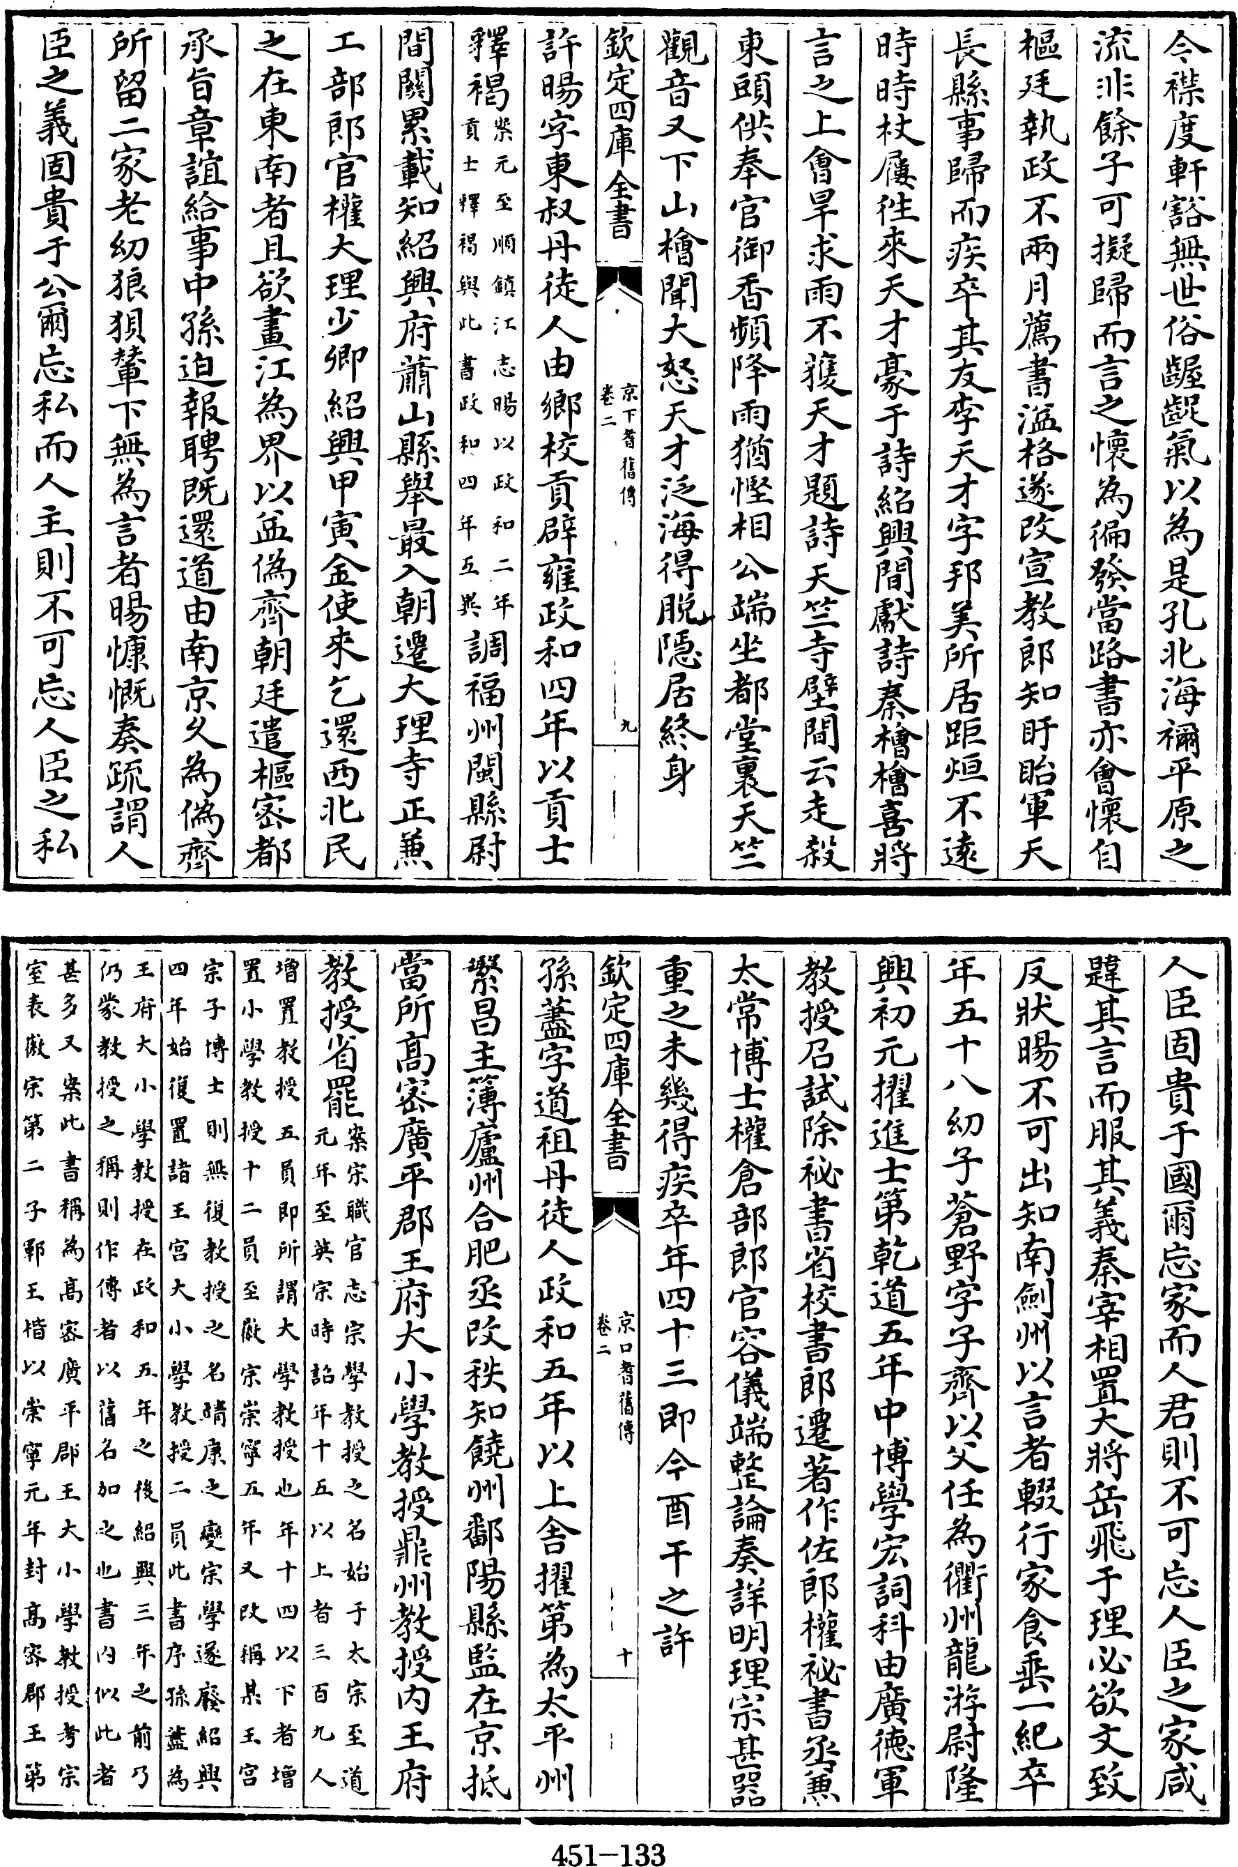 令襟度軒豁無世俗齷齪氣以為是孔北海禰平原之
流非餘子可擬歸而言之懷為徧發當路書亦會懷自
樞廷執政不兩月薦書溢格遂改宣教郎知盱眙軍天
長縣事歸而疾卒其友李天才字邦美所居距烜不遠
時時杖屨徃來天才豪于詩紹興間獻詩秦檜檜喜將
言之上會旱求雨不獲天才題詩天竺寺壁間云走殺
東頭供奉官御香頻降雨猶慳相公端坐都堂裏天竺
觀音又下山檜聞大怒天才泛海得脱隠居終身
欽定四庫全書
京下耆舊傳
卷二
九
許暘字東叔丹徒人由鄉校貢辟雍政和四年以貢士
釋褐案元至順鎮江志暘以政和二年貢士釋褐與此書政和四年互異調福州閩縣尉
間關累載知紹興府蕭山縣舉最入朝遷大理寺正兼
工部郎官權大理少卿紹興甲寅金使來乞還西北民
之在東南者且欲畫江為界以益偽齊朝廷遣樞密都
承旨章誼給事中孫迫報聘既還道由南京乆為偽齊
所留二家老幼狼狽輦下無為言者暘慷慨奏疏謂人
臣之義固貴于公爾忘私而人主則不可忘人臣之私
人臣固貴于國爾忘家而人君則不可忘人臣之家咸
韙其言而服其義秦宰相置大將岳飛于理必欲文致
反狀暘不可出知南劍州以言者輟行家食垂一紀卒
年五十八幼子蒼野字子齊以父任為衢州龍游尉隆
興初元擢進士第乾道五年中博學宏詞科由廣德軍
教授召試除祕書省校書郎遷著作佐郎權祕書丞兼
太常博士權倉部郎官容儀端整論奏詳明理宗甚器
重之未幾得疾卒年四十三即今酉干之許
欽定四庫全書
京口耆舊傳
卷二
十
孫藎字道祖丹徒人政和五年以上舍擢第為太平州
繁昌主簿廬州合肥丞改秩知饒州鄱陽縣監在京抵
當所高密廣平郡王府大小學教授鼎州教授内王府
教授省罷案宋職官志宗學教授之名始于太宗至道元年至英宗時詔年十五以上者三百九人
增置教授五員即所謂大學教授也年十四以下者增置小學教授十二員至徽宗崇寧五年又改稱某王宮
宗子博士則無復教授之名靖康之變宗學遂廢紹興四年始復置諸王宫大小學教授二員此書序孫藎為
王府大小學教授在政和五年之後紹興三年之前乃仍蒙教授之稱則作傳者以舊名加之也書内似此者
甚多又案此書稱為高密廣平郡王大小學教授考宋室表徽宗第二子鄆王楷以崇寧元年封高密郡王第
451-133